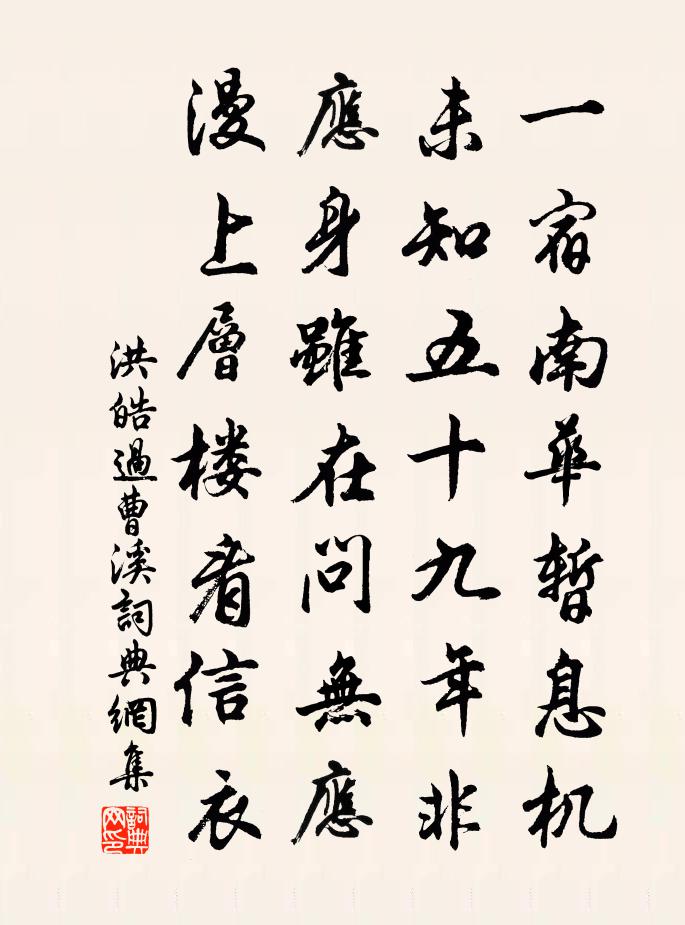 一宿南華暫息机
未知五十九年非
應身雖在問無應
漫上層楼看信衣
洪皓過曹溪詞典網集
詞典网印